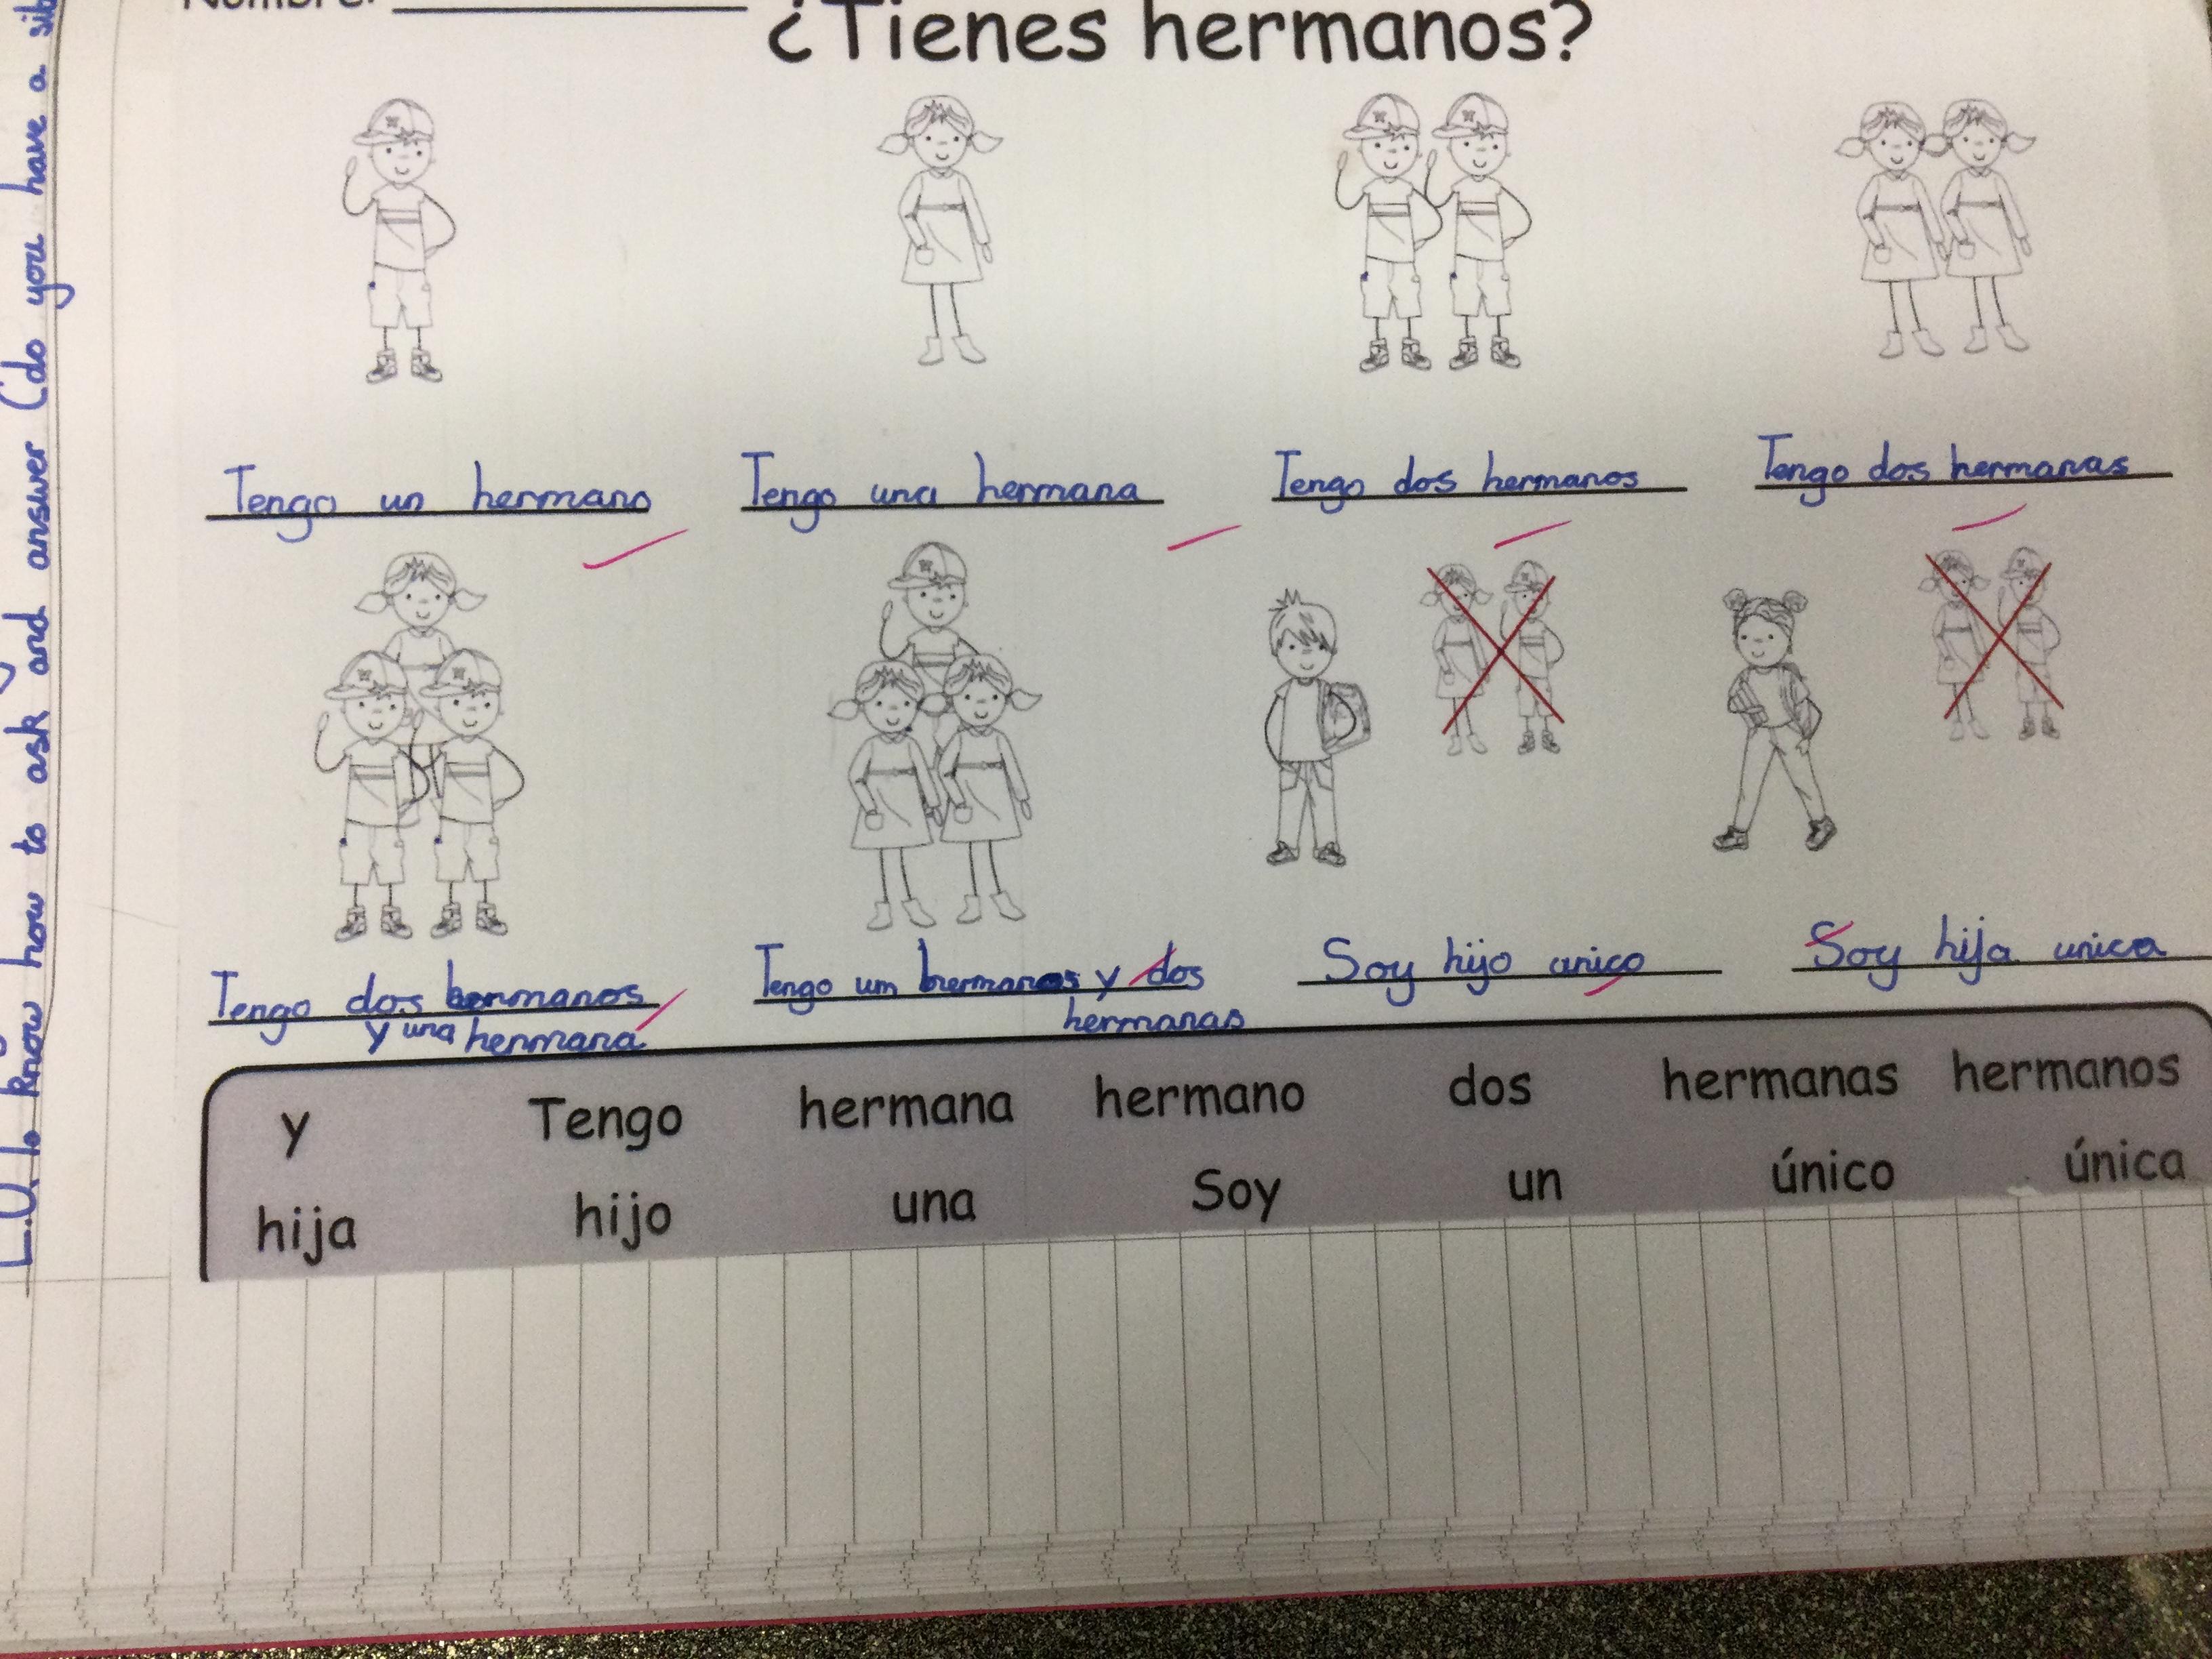 Nombre: ¿Tienes hermanos?
Tengo un hermano
Tengo una hermana
Tengo dos hermanos
Tengo dos hermanas
Tengo dos hermanos
y una hermana
Tengo um hermanos y dos
hermanas
Soy hijo unico
Soy hija unica
y Tengo hermana hermano dos hermanas hermanos
hija hijo una Soy un único única
know how to ask and answer (do you have a